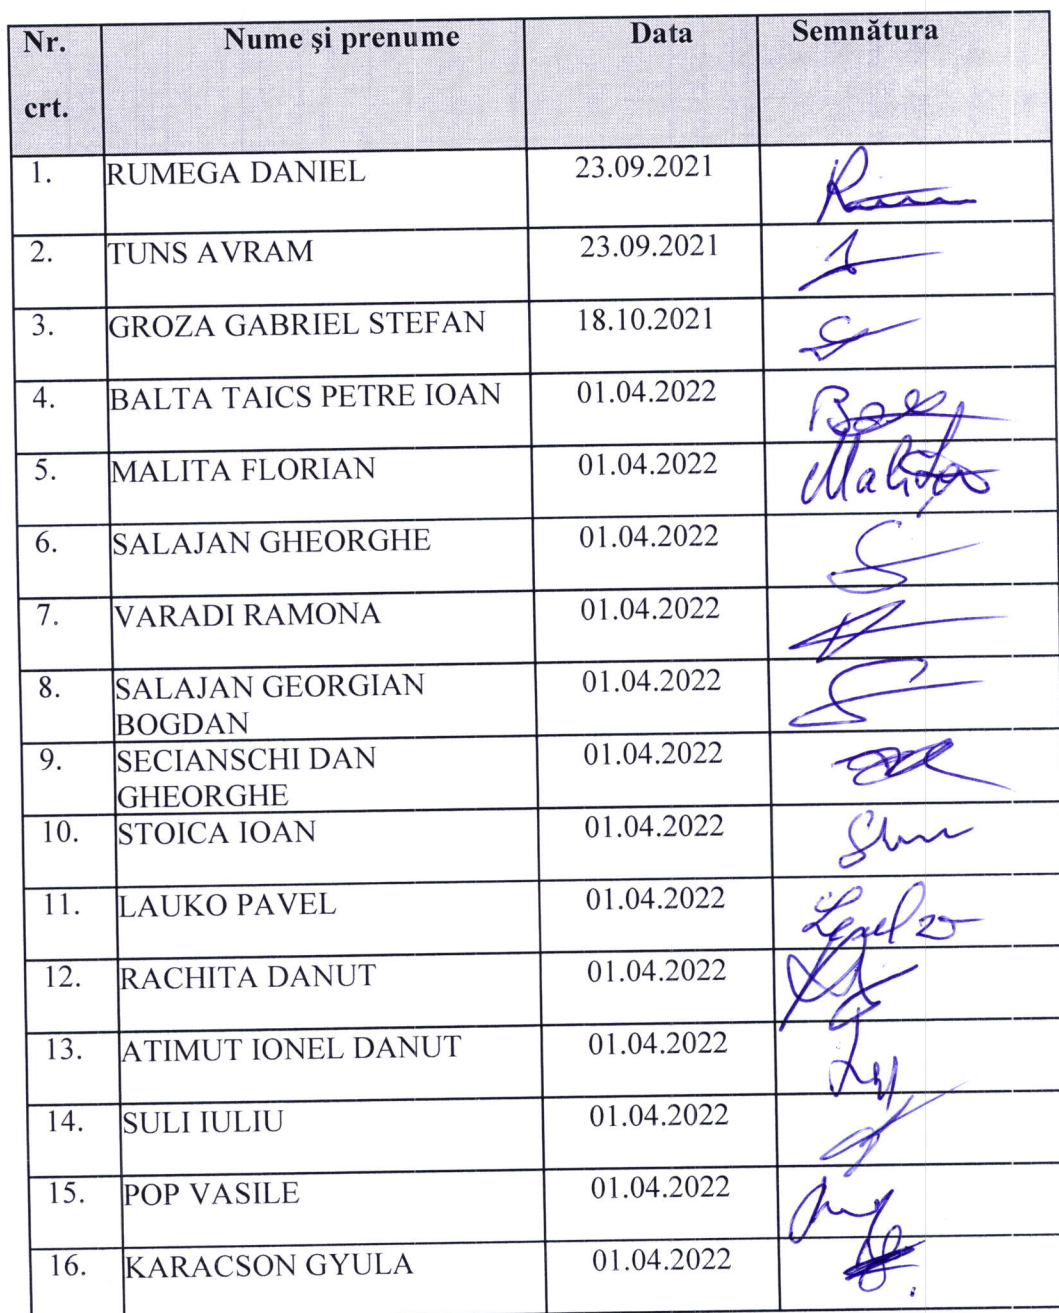 Nr. crt. Nume și prenume Data Semnătura
1. RUMEGA DANIEL 23.09.2021
2. TUNS AVRAM 23.09.2021
3. GROZA GABRIEL STEFAN 18.10.2021
4. BALTA TAICS PETRE IOAN 01.04.2022
5. MALITA FLORIAN 01.04.2022 Malita
6. SALAJAN GHEORGHE 01.04.2022
7. VARADI RAMONA 01.04.2022
8. SALAJAN GEORGIAN 01.04.2022
BOGDAN
9. SECIANSCHI DAN 01.04.2022
GHEORGHE
10. STOICA IOAN 01.04.2022
11. LAUKO PAVEL 01.04.2022
12. RACHITA DANUT 01.04.2022
13. ATIMUT IONEL DANUT 01.04.2022
14. SULI IULIU 01.04.2022
15. POP VASILE 01.04.2022
16. KARACSON GYULA 01.04.2022